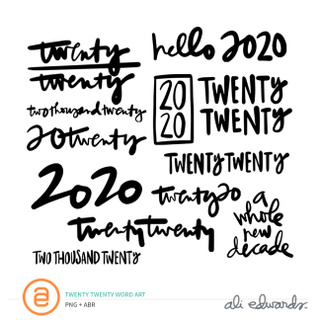 twenty
twenty
hello 2020
twothousandtwenty
20
20
TWENTY
TWENTY
20twenty
TWENTYTWENTY
2020
twenty20
a
whole
new
decade
twentytwenty
TWO THOUSAND TWENTY
a
TWENTY TWENTY WORD ART
PNG + ABR
ali edwards.